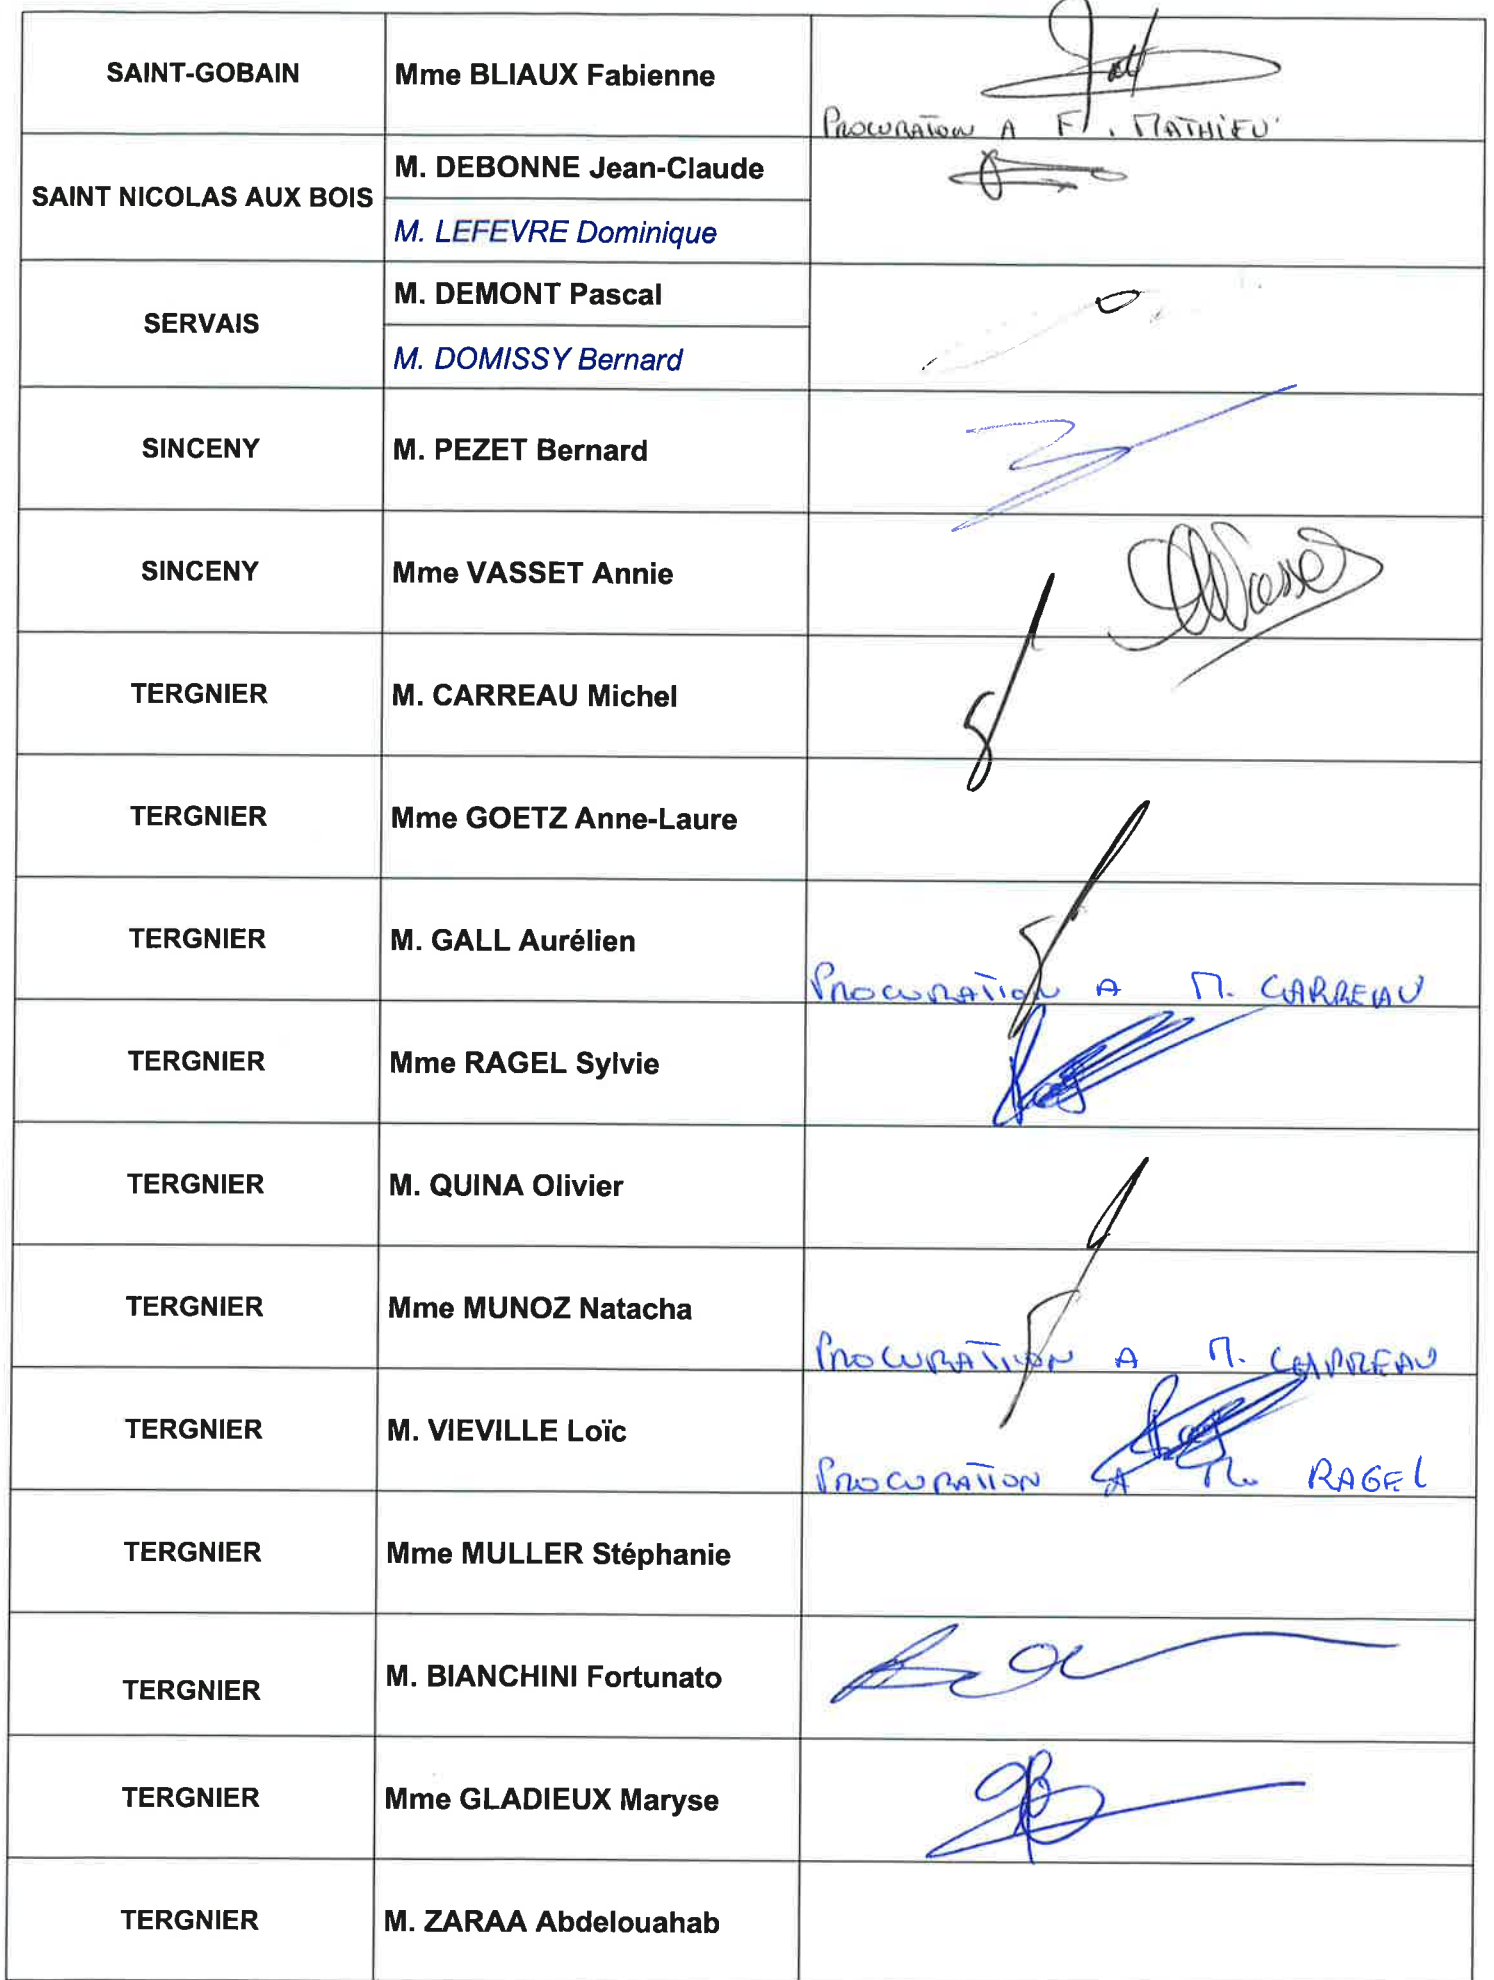 SAINT-GOBAIN
Mme BLIAUX Fabienne
PROCURATION A F. MATHIEU
SAINT NICOLAS AUX BOIS
M. DEBONNE Jean-Claude
M. LEFEVRE Dominique
SERVAIS
M. DEMONT Pascal
M. DOMISSY Bernard
SINCENY
M. PEZET Bernard
SINCENY
Mme VASSET Annie
Vasset
TERGNIER
M. CARREAU Michel
TERGNIER
Mme GOETZ Anne-Laure
TERGNIER
M. GALL Aurélien
PROCURATION A M. CARREAU
TERGNIER
Mme RAGEL Sylvie
TERGNIER
M. QUINA Olivier
TERGNIER
Mme MUNOZ Natacha
PROCURATION A M. CARREAU
TERGNIER
M. VIEVILLE Loïc
PROCURATION A RAGEL
TERGNIER
Mme MULLER Stéphanie
TERGNIER
M. BIANCHINI Fortunato
TERGNIER
Mme GLADIEUX Maryse
TERGNIER
M. ZARAA Abdelouahab